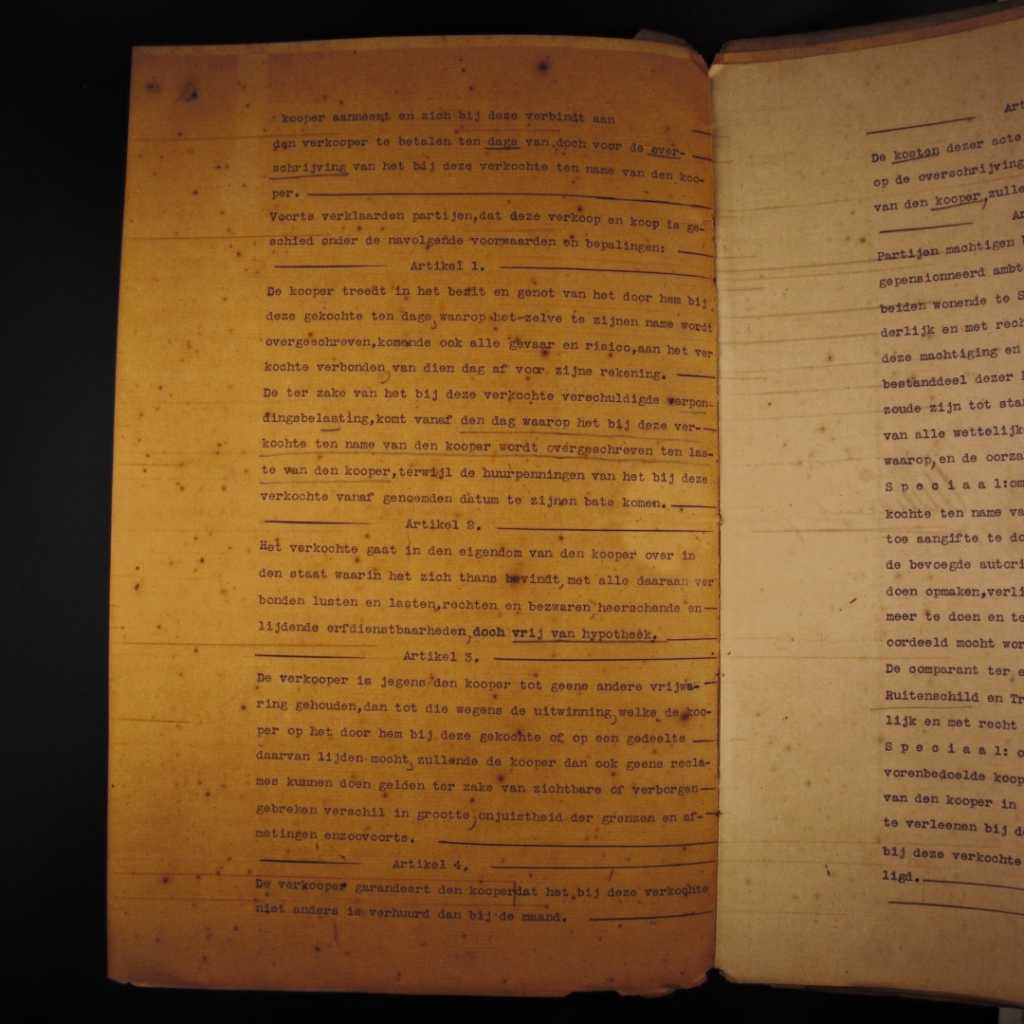 kooper aanneemt en zich bij deze verbindt aan
den verkooper te betalen ten dage van, doch voor de over-
schrijving van het bij deze verkochte ten name van den koo-
per.
Voorts verklaarden partijen,dat deze verkoop en koop is ge-
schied onder de navolgende voorwaarden en bepalingen:
Artikel 1.
De kooper treedt in het bezit en genot van het door hem bij
deze gekochte ten dage, waarop het-zelve te zijnen name wordt
overgeschreven,komende ook alle gevaar en risico,aan het ver
kochte verbonden, van dien dag af voor zijne rekening.
De ter zake van het bij deze verkochte verschuldigde verpon-
dingsbelasting,komt vanaf den dag waarop het bij deze ver-
kochte ten name van den kooper wordt overgeschreven ten las-
te van den kooper,terwijl de huurpenningen van het bij deze
verkochte vanaf genoemden datum te zijnen bate komen.
Artikel 2.
Het verkochte gaat in den eigendom van den kooper over in
den staat waarin het zich thans bevindt, met alle daaraan ver
bonden lusten en lasten,rechten en bezwaren heerschende en
lijdende erfdienstbaarheden, doch vrij van hypotheek.
Artikel 3.
De verkooper is jegens den kooper tot geene andere vrijwa-
ring gehouden,dan tot die wegens de uitwinning, welke de koo-
per op het door hem bij deze gekochte of op een gedeelte
daarvan lijden mocht, zullende de kooper dan ook geene recla-
mes kunnen doen gelden ter zake van zichtbare of verborgen
gebreken verschil in grootte, onjuistheid der grenzen en af-
metingen enzoovoorts.
Artikel 4.
De verkooper garandeert den kooper dat het bij deze verkochte
niet anders is verhuurd dan bij de maand.
Art
De kosten dezer acte
op de overschrijving
van den kooper, zulle
Ar
Partijen machtigen
gepensionneerd ambt
beiden wonende te S
derlijk en met rech
deze machtiging en
bestanddeel dezer
zoude zijn tot sta
van alle wettelijk
waarop, en de oorza
S p e c i a a l:om
kochte ten name va
toe aangifte te do
de bevoegde autori
doen opmaken,verli
meer te doen en te
oordeeld mocht wor
De comparant ter e
Ruitenschild en Tr
lijk en met recht
S p e c i a a l: o
vorenbedoelde koop
van den kooper in
te verleenen bij d
bij deze verkochte
ligd.